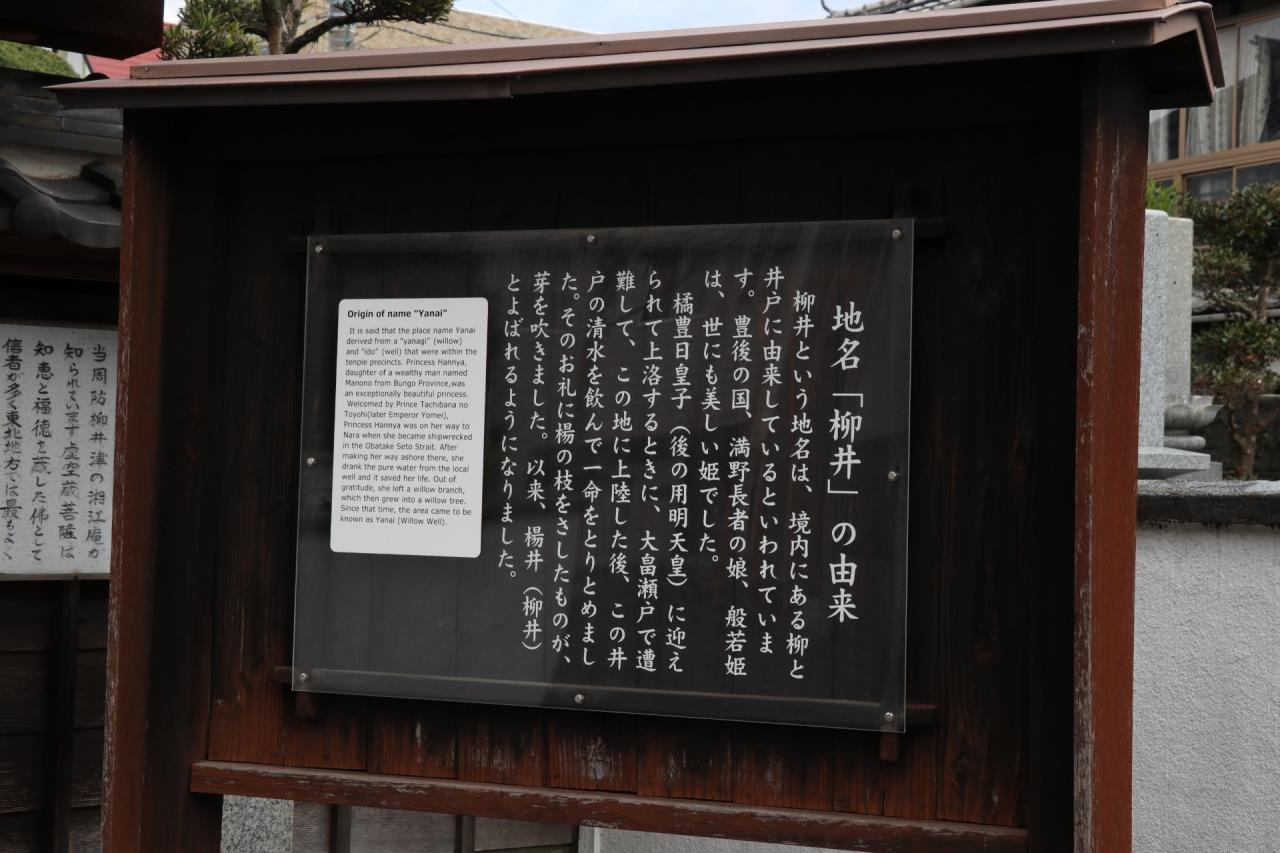 地名「柳井」の由来
柳井という地名は、境内にある柳と
井戸に由来しているといわれていま
す。豊後の国、満野長者の娘、般若姫
は、世にも美しい姫でした。
橘豊日皇子（後の用明天皇）に迎え
られて上洛するときに、大畠瀬戸で遭
難して、この地に上陸した後、この井
戸の清水を飲んで一命をとりとめまし
た。そのお礼に楊の枝をさしたものが、
芽を吹きました。以来、楊井（柳井）
とよばれるようになりました。
Origin of name "Yanai"
It is said that the place name Yanai
derived from a "yanagi" (willow)
and "ido" (well) that were within the
tenple precincts. Princess Hannya,
daughter of a wealthy man named
Manono from Bungo Province,was
an exceptionally beautiful princess.
Welcomed by Prince Tachibana no
Toyohi(later Emperor Yomei),
Princess Hannya was on her way to
Nara when she became shipwrecked
in the Obatake Seto Strait. After
making her way ashore there, she
drank the pure water from the local
well and it saved her life. Out of
gratitude, she left a willow branch,
which then grew into a willow tree.
Since that time, the area came to be
known as Yanai (Willow Well).
当周防柳井津の湘江庵が
知られています虚空蔵菩薩は
知恵と福徳を蔵した佛として
信者が多く東北地方では最もよく